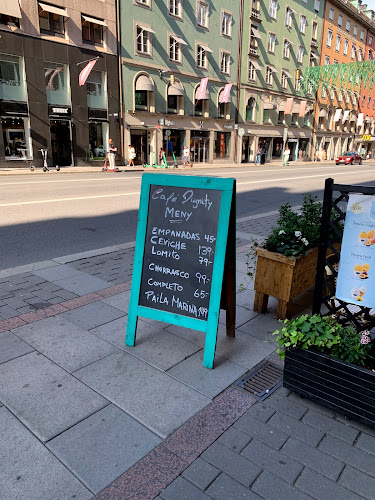 Café Dignity
MENY
EMPANADAS 45-
CEVICHE 139-
LOMITO 79-
CHURRASCO 99-
COMPLETO 65-
PAILA MARINA 149